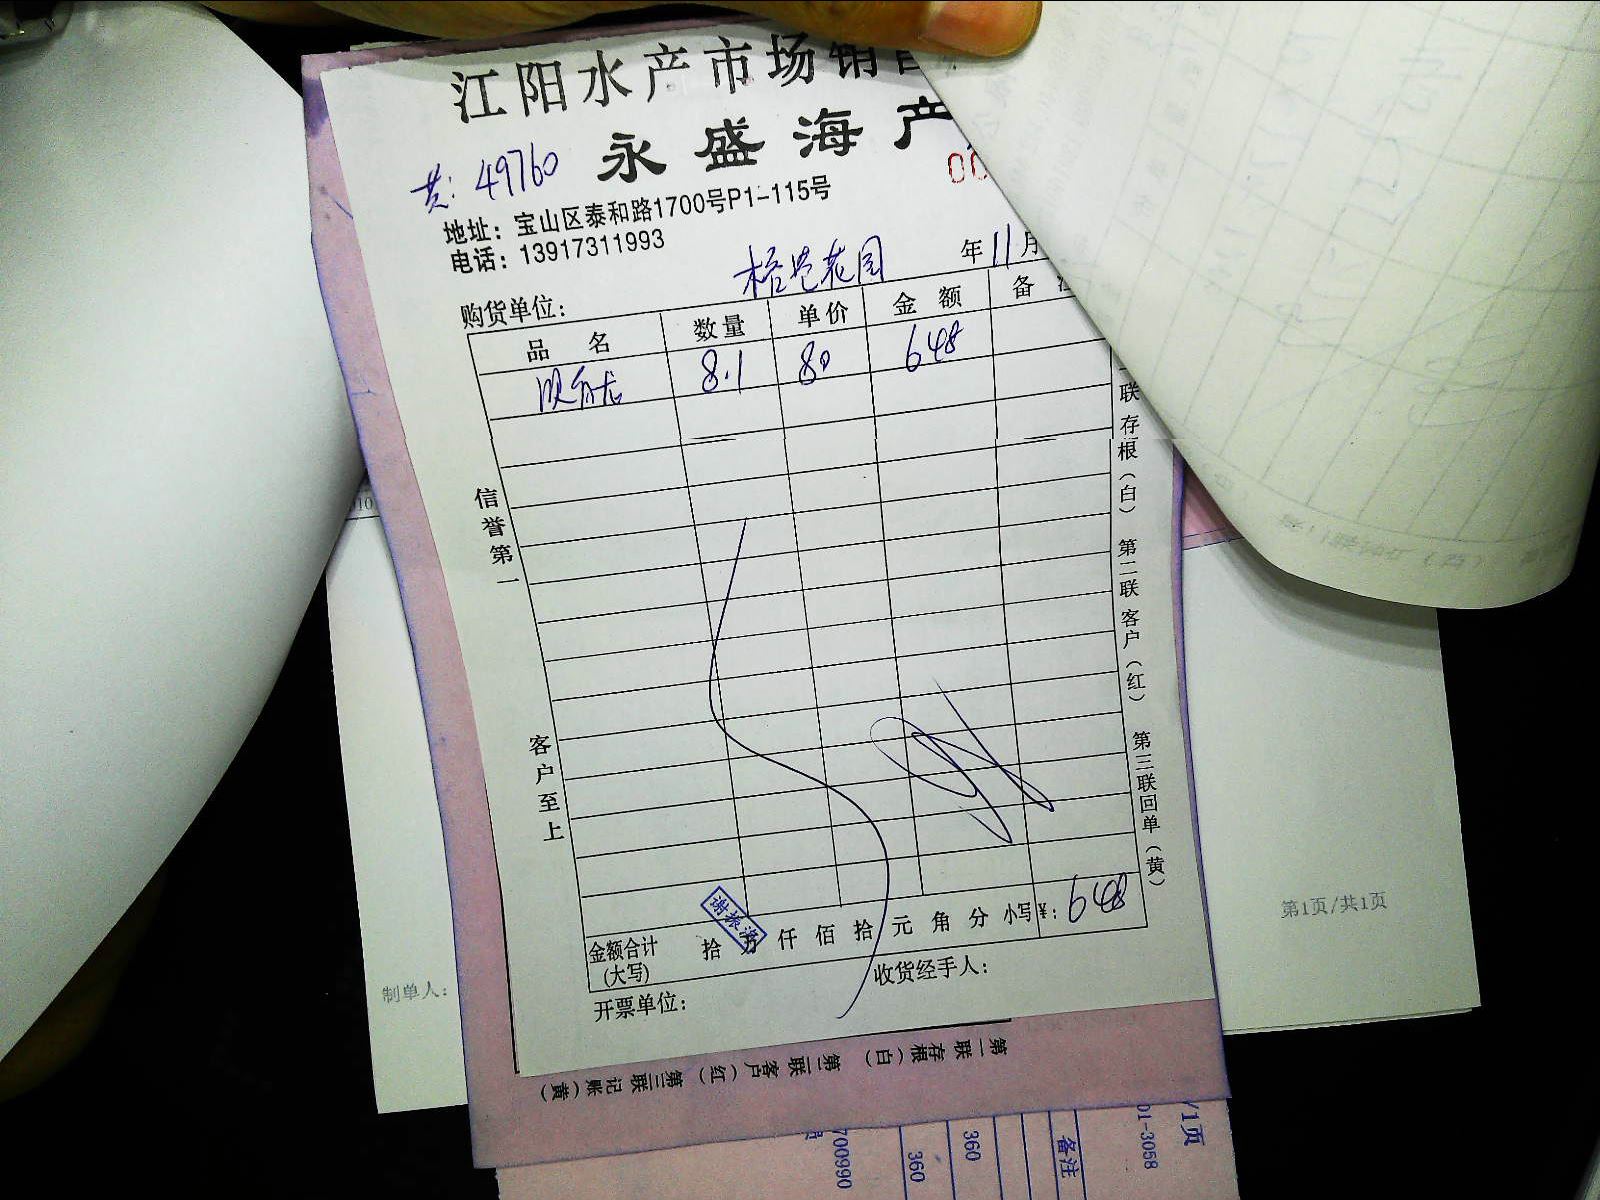 江阳水产市场销
永盛海产
共: 49760
00
地址：宝山区泰和路1700号P1-115号
电话：13917311993
花园
年11月
购货单位：
品 名 数量 单价 金额 备
8.1 80 648
信誉第一
客户至上
联存根（白） 第二联客户（红） 第三联回单（黄）
金额合计（大写） 拾 万 仟 佰 拾 元 角 分 小写¥: 648
谢振
开票单位：
收货经手人：
第一联存根（白） 第二联客户（红） 第三联记账（黄）
制单人：
第1页/共1页
/1页
01-3058
备注
360
360
700990